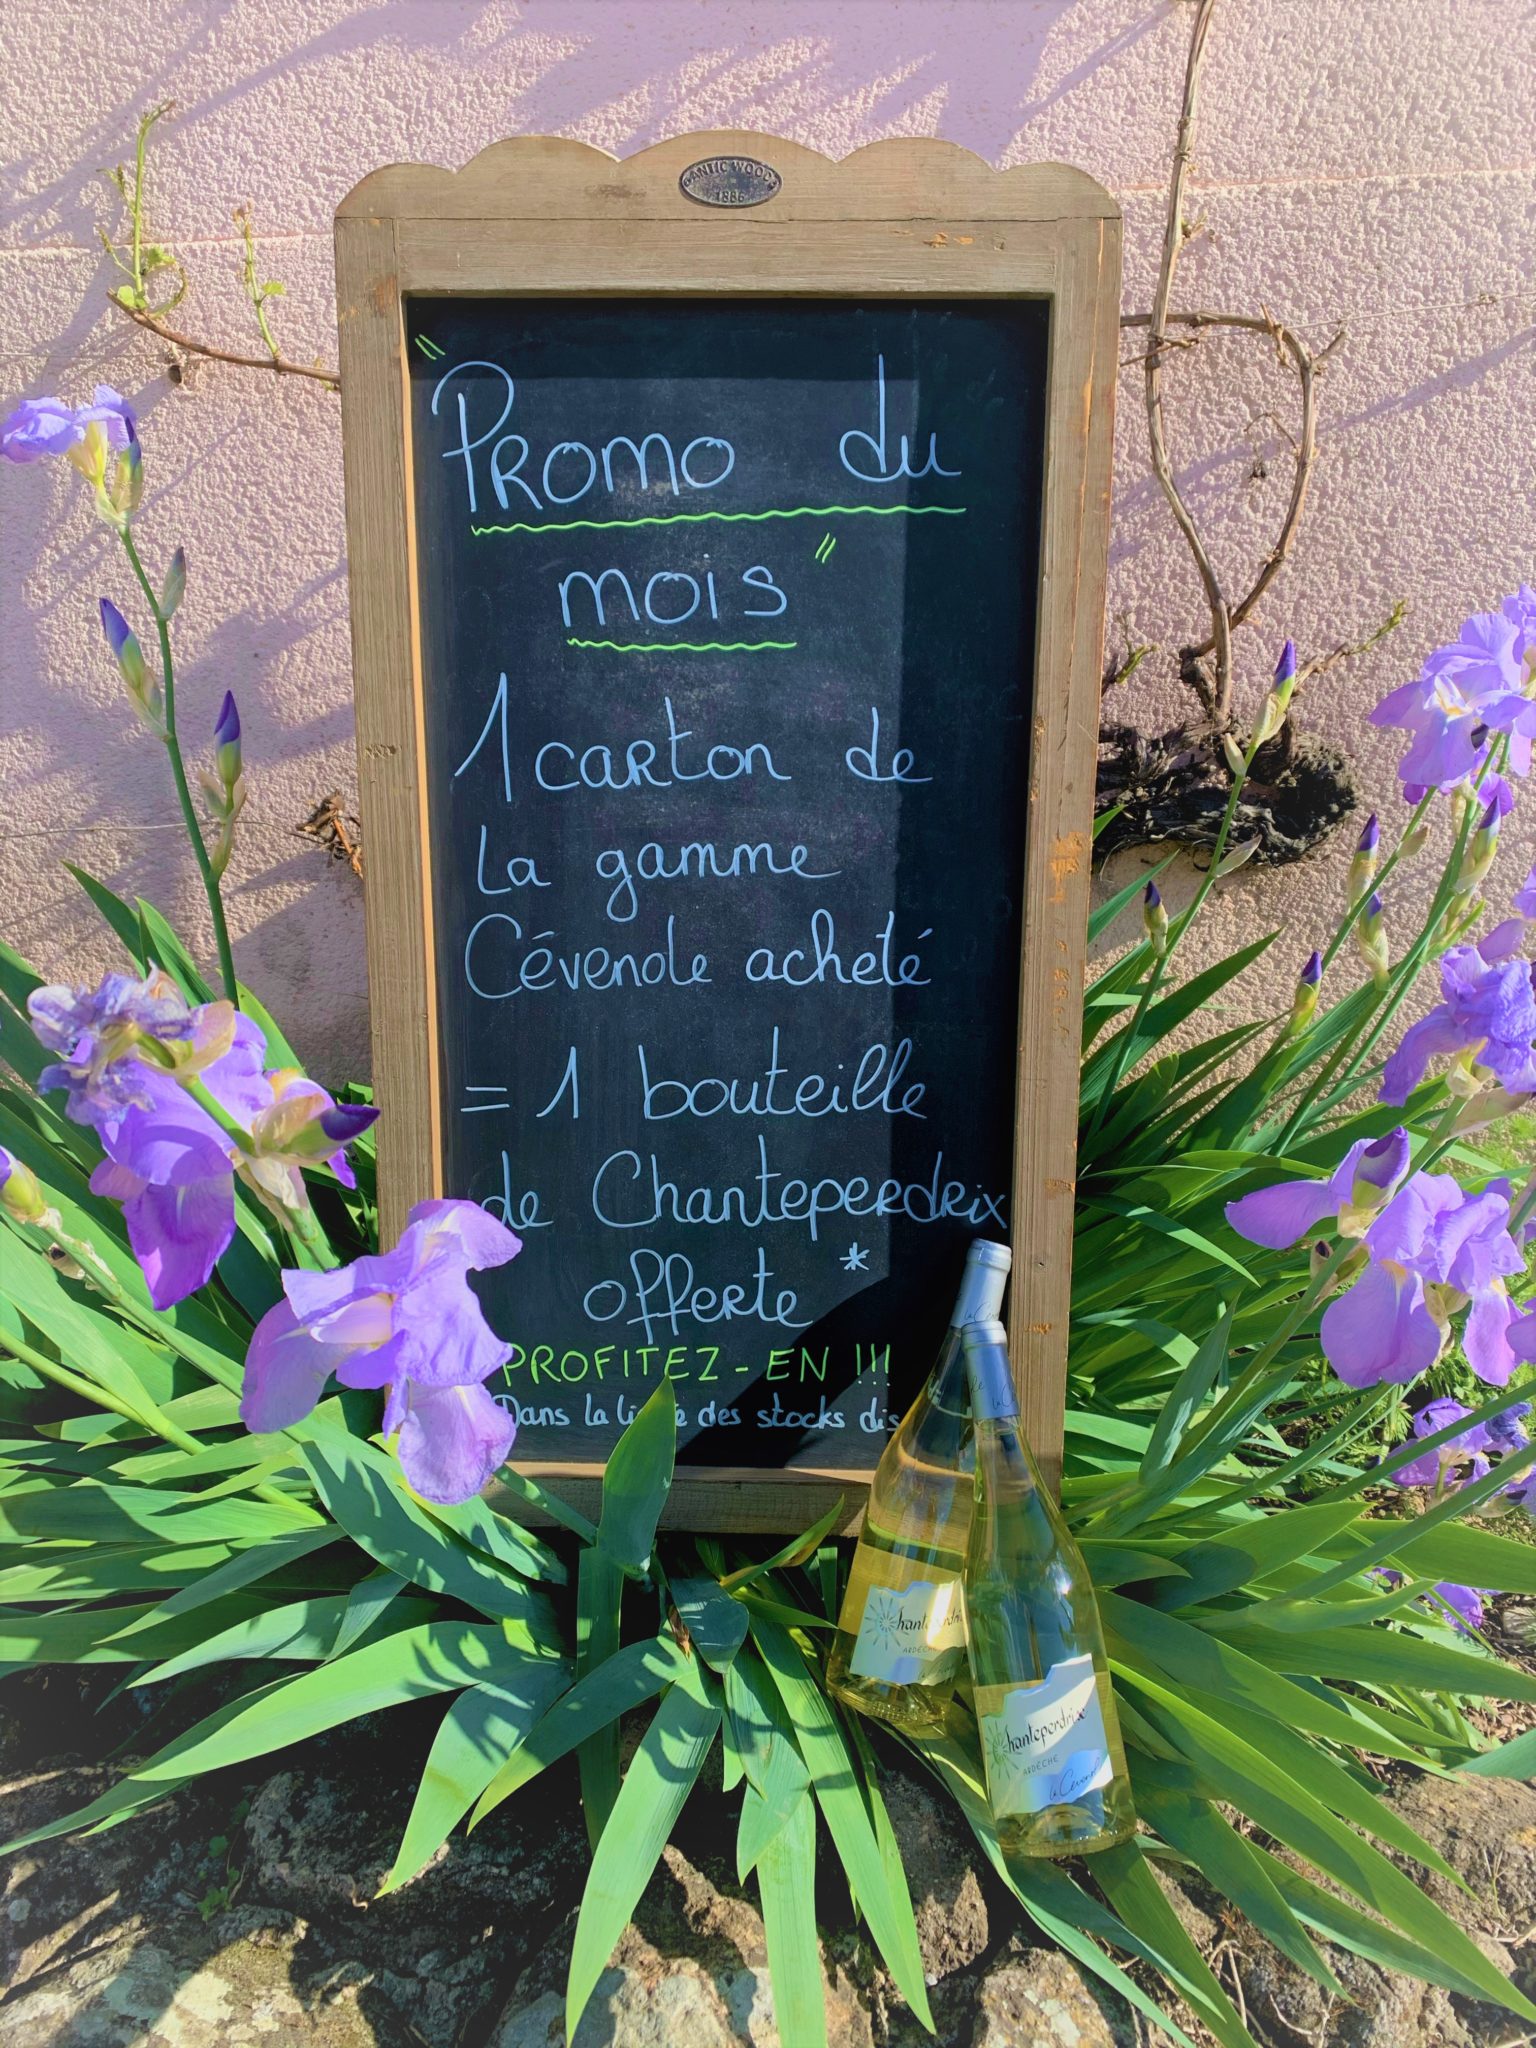 ANTIC WOOD
1886
"Promo du
mois"
1 carton de
La gamme
Cévenole acheté
= 1 bouteille
de Chanteperdrix
offerte*
PROFITEZ-EN !!!
Dans la des stocks
Chanteperdrix
ARDÈCHE
Chanteperdrix
ARDÈCHE